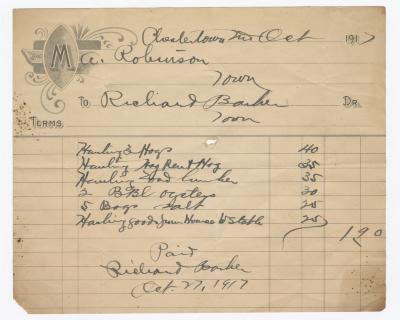 Chestertown Md Oct 1917
M A. Robinson
Town
To Richard Barker Dr.
Town
Terms
Hauling 3 Hogs 40
Hauling Hog 25
Hauling load lumber 35
2 BBl oysters 30
5 Bags salt 25
Hauling goods from House to Stable 25
190
Paid
Richard Barker
Oct. 27, 1917